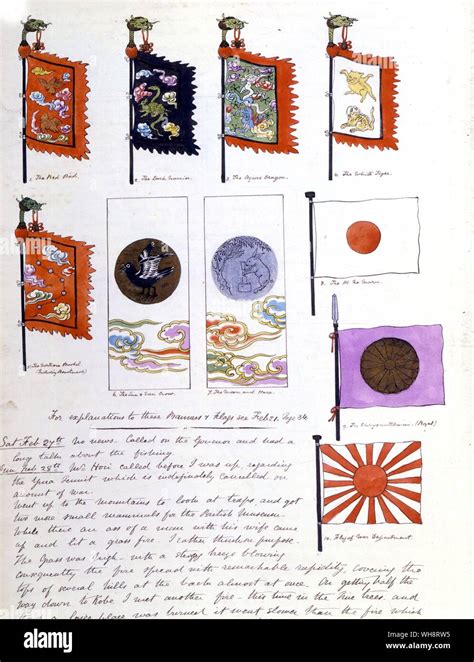 1. The Red Bird.
2. The Dark Warrior.
3. The Azure Dragon.
4. The White Tiger.
5. The
6. The Sun & Crow.
7. The Moon and Hare.
8. The
9. The Chrysanthemum. (Royal)
10. Flag of War Department.
For explanations to these Banners & Flags see Feb 21. Page 34.
Sat Feb 27th No news. Called on the Governor and had a
long talk about the fishing
Sun Feb. 28th Mr Hori called before I was up regarding
the permit which is indefinitely cancelled on
account of war.
Went up to the mountains to look at traps and got
two more small mammals for the British Museum.
While there an ass of a man with his wife came
up and lit a grass fire. I rather think on purpose.
The Grass was high with a strong breeze blowing
consequently the fire spread with remarkable rapidity, covering the
tops of several hills at the back almost at once. On getting half the
way down to Kobe I met another fire. this time in the Pine trees and
large place was burned it went slower than the fire which
alamy
Image ID: WH8RW5
www.alamy.com